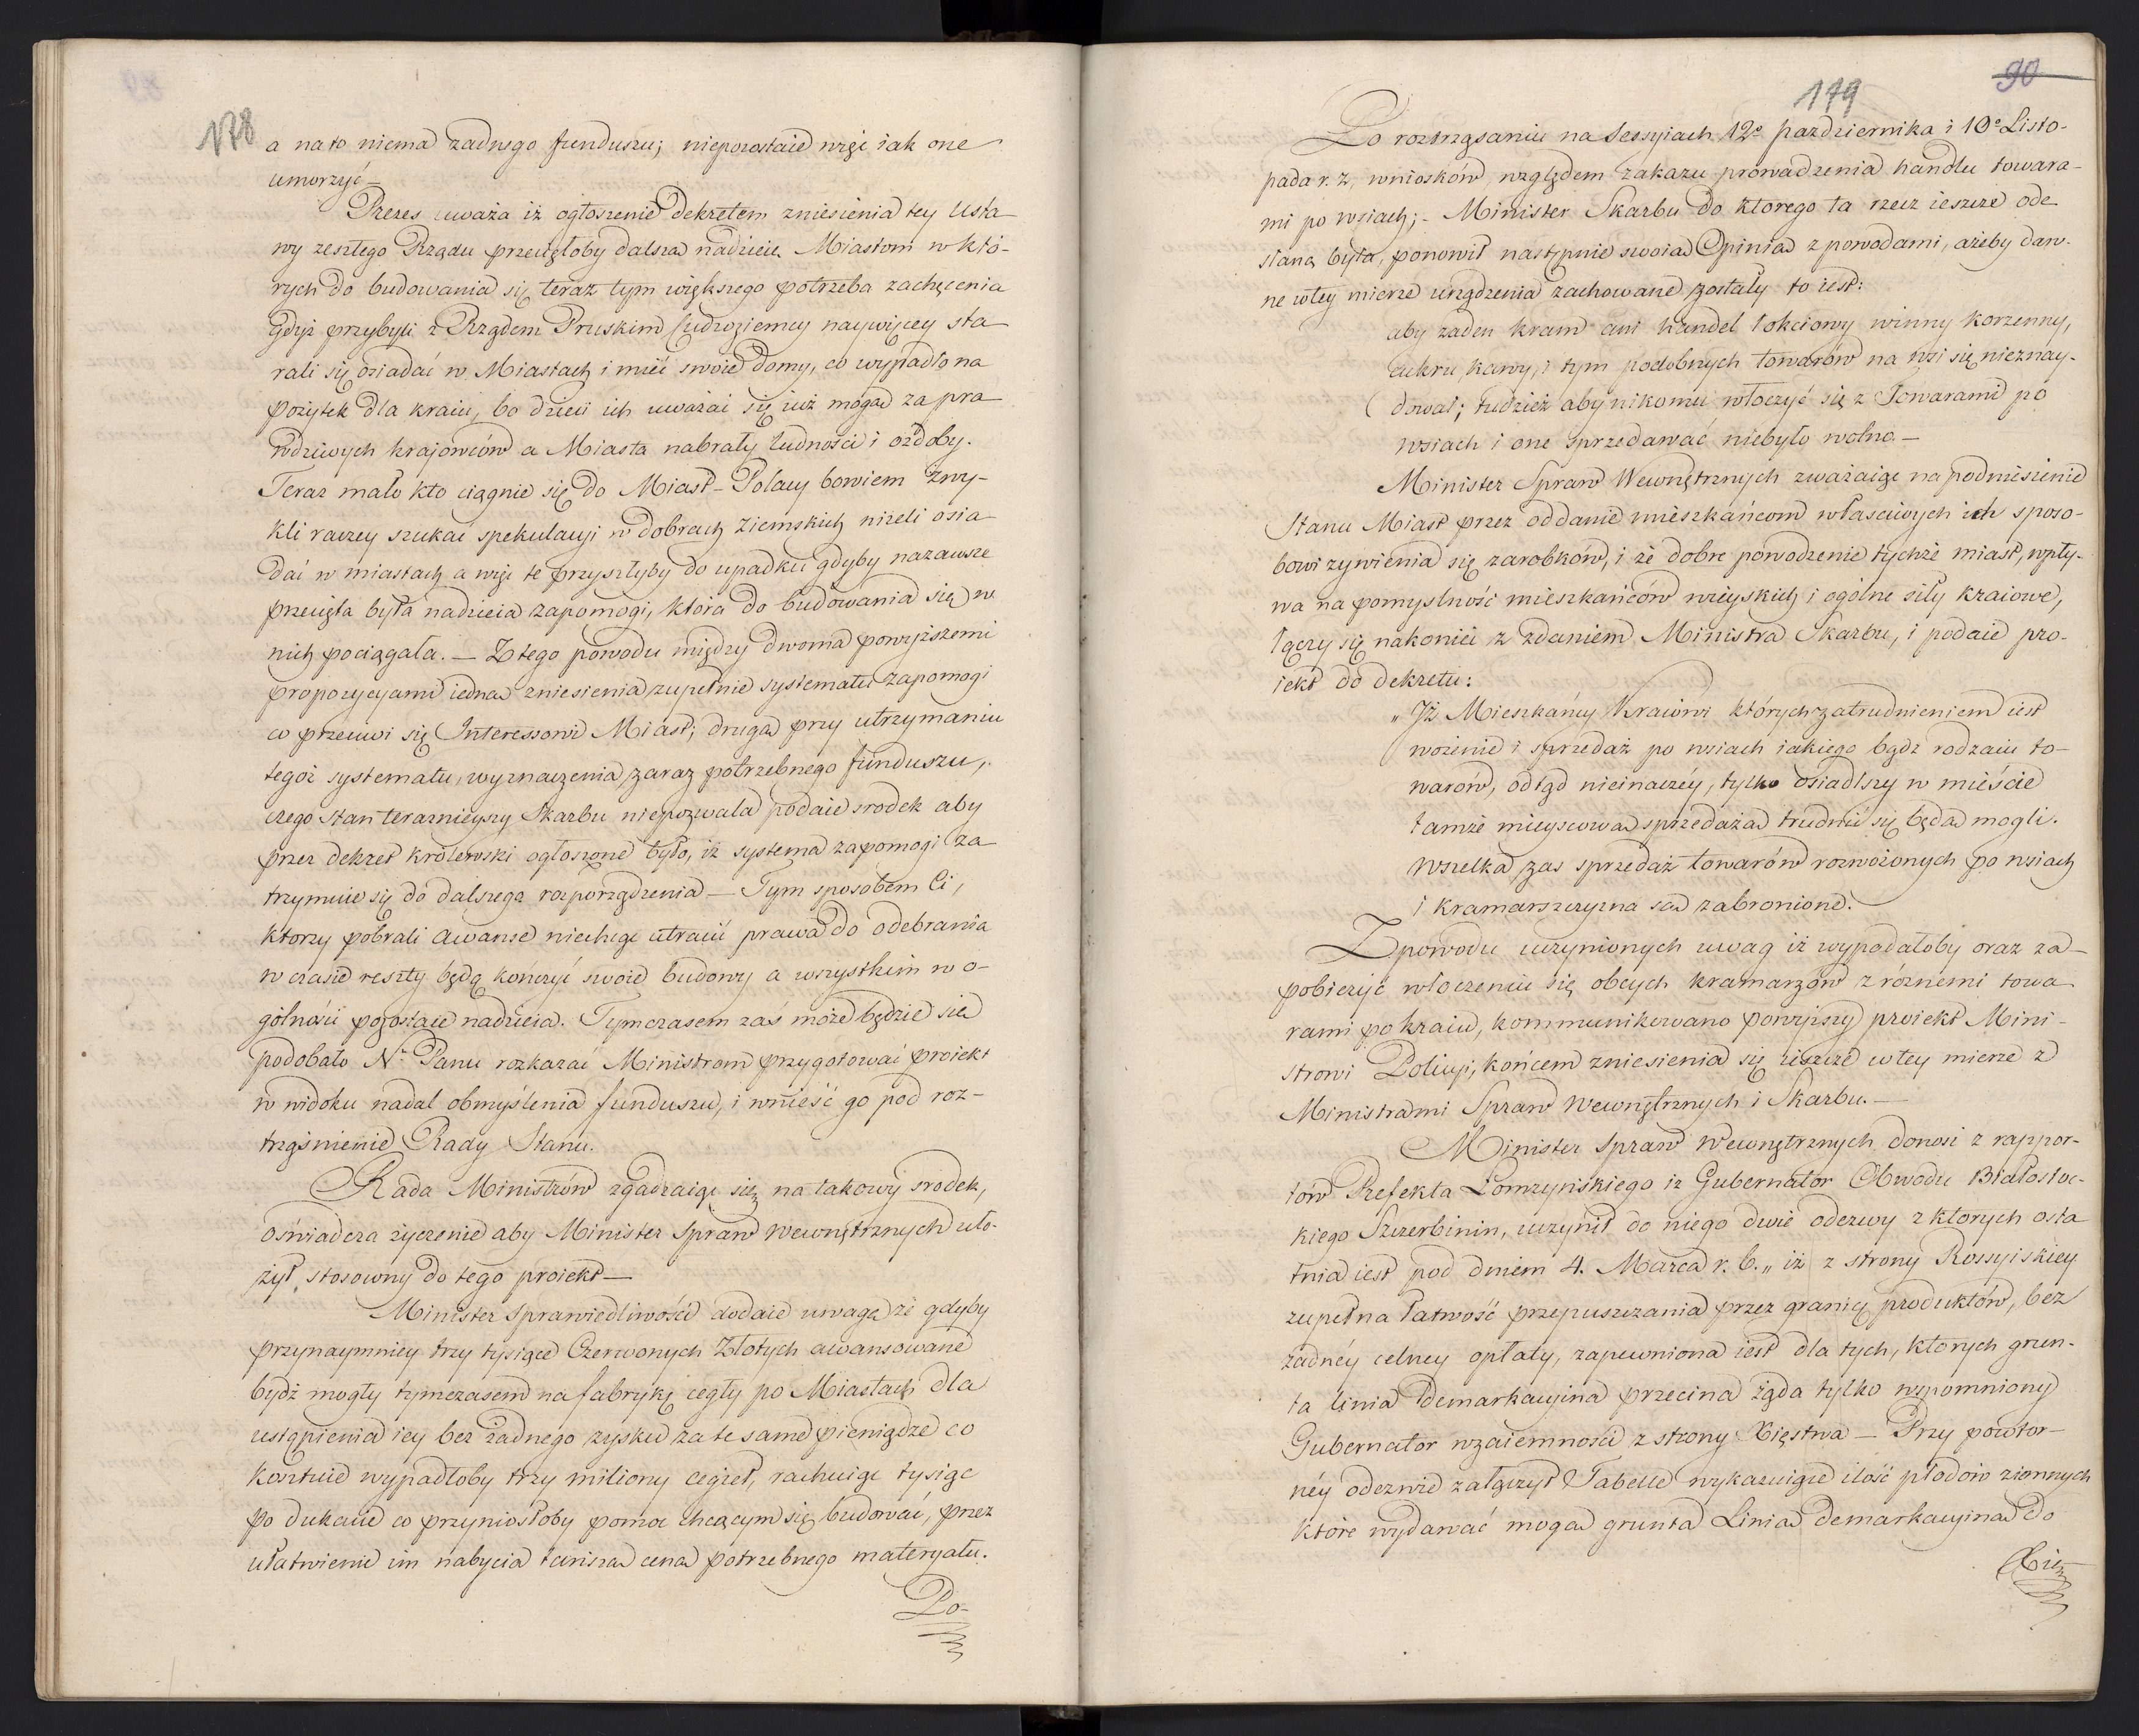 178
a na to niema żadnego funduszu; niepozostaie więc iak one
umorzyć —
Prezes uważa iż ogłoszenie Dekretem zniesienia tey Usta-
wy zeszłego Rządu przecięłoby dalszą nadzieię Miastom w któ-
rych do budowania się teraz tym większego potrzeba zachęcenia
gdyż przybyli z Rządem Pruskim Cudzoziemcy naywięcey sta-
rali się osiadać w Miastach i mieć swoie Domy, co wypadło na
pożytek dla kraiu, bo dzieci ich uważać się iuż mogą za pra-
wdziwych krajowców a Miasta nabrały ludności i ozdoby.
Teraz mało kto ciągnie się do Miast – Polacy bowiem zwy-
kli raczey szukać spekulacyi w dobrach ziemskich niżeli osia-
dać w miastach a więc te przyszłyby do upadku gdyby nazawsze
przecięta była nadzieia zapomogi, która do budowania się w
nich pociągała. — Z tego powodu między dwoma powyższemi
propozycyami iedną zniesienia zupełnie systematu zapomogi
co przeciwi się Interessowi Miast; drugą przy utrzymaniu
tegoż systematu, wyznaczenia zaraz potrzebnego funduszu,
czego stan teraznieyszy Skarbu niepozwala podaie srodek aby
przez dekret królewski ogłoszone było, iż systema zapomogi za-
trzymuie się do dalszego rozporządzenia — Tym sposobem Ci,
ktorzy pobrali awanse niechcąc utracić prawa do odebrania
w czasie reszty będą kończyć swoie budowy a wszystkim w o-
gólności pozostaie nadzieia. Tymczasem zaś może będzie się
podobało N. Panu rozkazać Ministrom przygotować proiekt
w widoku nadal obmyślenia funduszu, i wnieść go pod roz-
trząśnienie Rady Stanu.
Rada Ministrów zgadzaiąc się na takowy srodek,
oświadcza życzenie aby Minister Spraw Wewnętrznych uło-
żył stosowny do tego proiekt —
Minister Sprawiedliwości dodaie uwagę że gdyby
przynaymniey trzy tysiące Czerwonych Złotych awansowane
bydź mogły tymczasem na fabrykę cegły po Miastach dla
ustąpienia iey bez żadnego zysku za te same pieniądze co
kosztuie wypadłoby trzy miliony cegieł, rachuiąc tysiąc
po dukacie co przyniosłoby pomoc chcącym się budować, przez
ułatwienie im nabycia tańszą ceną potrzebnego materyału.
Po-
179
90
Po roztrząsaniu na Sessyiach 12º pazdziernika i 10º Listo-
pada r. z, wniosków, względem zakazu prowadzenia handlu towara-
mi po wsiach; - Minister Skarbu do ktorego ta rzecz ieszcze ode-
słaną była, ponowił następnie swoią Opinią z powodami, ażeby daw-
ne w tey mierze urządzenia zachowane zostały to iest:
aby żaden kram ani handel łokciowy winny korzenny,
cukru, kawy, i tym podobnych towarów na wsi się nieznay-
dował; tudzież aby nikomu włoczyć się z Towarami po
wsiach i one sprzedawać niebyło wolno. —
Minister Spraw Wewnętrznych zważaiąc na podniesienie
Stanu Miast przez oddanie mieszkańcom właściwych ich sposo-
bowi żywienia się zarobków, i że dobre powodzenie tychże miast, wpły-
wa na pomyślność mieszkańców wieyskich i ogólne siły kraiowe,
łączy się nakoniec z zdaniem Ministra Skarbu, i podaie pro-
iekt do dekretu:
„Iż Mieszkańcy Kraiowi których zatrudnieniem iest
wożenie i sprzedaż po wsiach iakiego bądź rodzaiu to-
warów, odtąd nieinaczéy, tylko osiadłszy w mieście
tamże mieyscową sprzedażą trudnić się będą mogli.
Wszelka zas sprzedaż towarów rozwożonych po wsiach
i kramarszczyzna są zabronione.
Z powodu uczynionych uwag iż wypadałoby oraz za-
pobieżyć włoczeniu się obcych kramarzów z różnemi towa-
rami po kraiu, kommunikowano powyższy proiekt Mini-
strowi Policyi, końcem zniesienia się ieszcze w tey mierze z
Ministrami Spraw Wewnętrznych i Skarbu. —
Minister Spraw Wewnętrznych donosi z rappor-
tów Prefekta Łomzyńskiego iż Gubernator Obwodu Białostoc-
kiego Szczerbinin, uczynił do niego dwie odezwy z ktorych osta-
tnia iest pod dniem 4. Marca r. b. „iż z strony Rossyiskiey
zupełna łatwość przepuszczania przez granicę produktów, bez
żadnéy celney opłaty, zapewniona iest dla tych, ktorych grun-
ta linia demarkacyina przecina żąda tylko wspomniony
Gubernator wzaiemności z strony Xięstwa — Przy powtor-
néy odezwie załączył Tabelle wykazuiące ilość płodów ziemnych
które wydawać mogą grunta Linią demarkacyiną do
Xię-